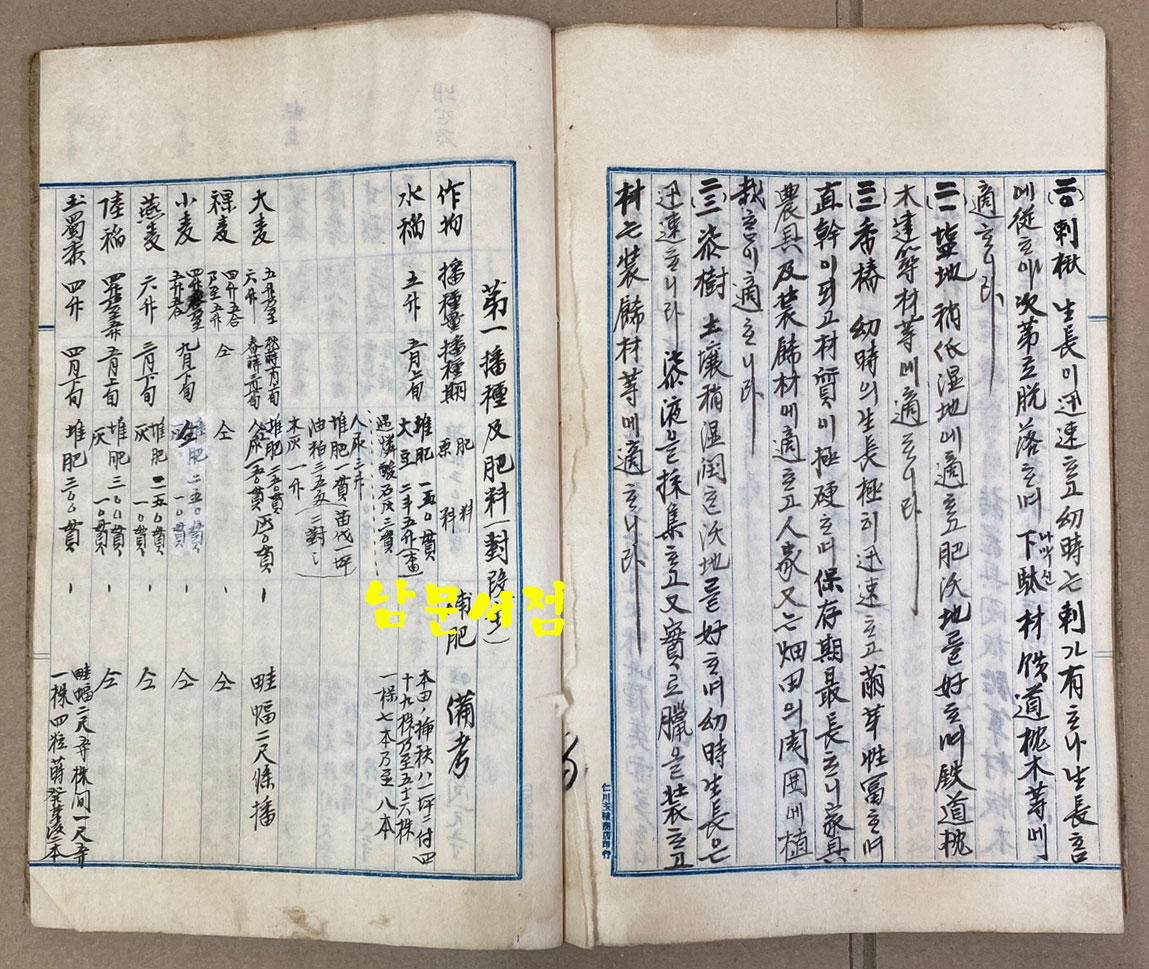 (二〇)刺楸 生長이迅速ᄒᆞ고幼時ᄂᆞᆫ刺가有ᄒᆞ나生長홈
에從ᄒᆞ야次第로脫落ᄒᆞ며下駄材鉄道枕木等에
나막신
適ᄒᆞ니라
(二一)塩地 稍低湿地에適ᄒᆞ고肥沃地ᄅᆞᆯ好ᄒᆞ며鉄道枕
木建築材等에適ᄒᆞ니라
(三)香椿 幼時의生長極히迅速ᄒᆞ고萠芽性富ᄒᆞ며
直幹이되고材質이極硬ᄒᆞ며保存期最長ᄒᆞ니家具
農具及装飾材에適ᄒᆞ고人家又ᄂᆞᆫ畑田의周囲에植
栽홈이適ᄒᆞ니라
(三)漆樹 土壤稍湿润ᄒᆞᆫ沃地ᄅᆞᆯ好ᄒᆞ며幼時生長은
迅速ᄒᆞ니라 漆液을採集ᄒᆞ고又實로臘을装ᄒᆞ고
材ᄂᆞᆫ装飾材等에適ᄒᆞ니라
仁川玉積商店印行
第一播種及肥料(對段步)
作物 播種量 播種期 肥料 原料 補肥 備考
水稲 五升 五月上旬 堆肥 一五〇貫
大豆 二斗五升
過燐酸石灰三貫
本田ノ挿秧ハ一坪ニ付四
十九株乃至五十六株
一株七本乃至八本
人尿三斗
堆肥一貫苗代一坪
油粕三五匁ニ對シ
木灰一升
大麦 五升乃至六升 秋蒔 春蒔 堆肥二五〇貫 人尿 灰 畦幅二尺條播
裸麦 四升五合乃至五升 仝 仝 仝
小麦 九月下旬 堆肥二五〇貫 仝
燕麦 六升 三月下旬 堆肥二五〇貫 灰一〇貫 仝
陸稲 五月上旬 堆肥三〇〇貫 灰一〇貫 仝
玉蜀黍 四升 四月下旬 堆肥三〇〇貫 畦幅二尺五寸株間一尺五寸
一株四粒蒔発芽後二本
남문서점